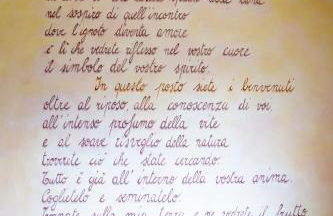 nel sospiro di quell'incontro
dove l'ignoto diventa amore
e lì che vedrete riflesso nel vostro cuore
il simbolo del vostro spirito.
In questo posto siete i benvenuti
oltre al riposo, alla conoscenza di voi,
all'intenso profumo della vite
e al soave risveglio della natura
troverete ciò che state cercando.
Tutto è già all'interno della vostra anima.
Coglietelo e seminatelo.
sulla mia terra e ne vedrete il frutto